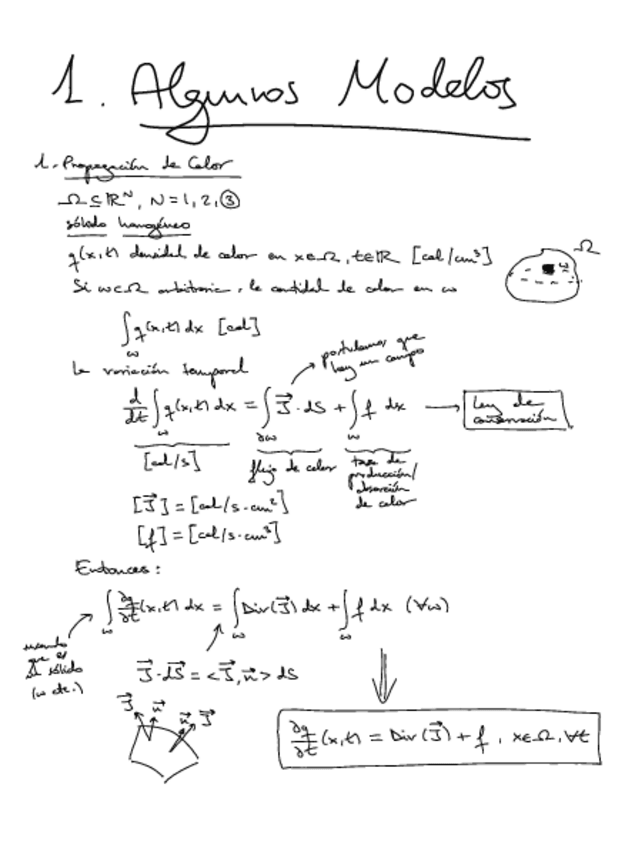 1. Algunos Modelos
1.- Propagación de Calor
Ω ⊆ ℝᴺ, N = 1, 2, ③
sólido homogéneo
q(x,t) densidad de calor en x∈Ω, t∈ℝ [cal/cm³]
Ω
Si ω⊂Ω arbitrario, la cantidad de calor en ω
ω
∫_ω q(x,t) dx [cal]
la variación temporal
postulamos que
hay un campo
d/dt ∫_ω q(x,t) dx = ∫_∂ω J⃗ · dS + ∫_ω f dx → Ley de
conservación
[cal/s] flujo de calor tasa de
producción/
absorción
de calor
[J⃗] = [cal/s·cm²]
[f] = [cal/s·cm³]
Entonces:
∫_ω ∂q/∂t (x,t) dx = ∫_ω Div(J⃗) dx + ∫_ω f dx (∀ω)
que es
sólido
(ω cte.)
J⃗ · dS⃗ = <J⃗, n⃗> dS
J⃗ n⃗ n⃗ J⃗
∂q/∂t (x,t) = Div(J⃗) + f, x∈Ω, ∀t